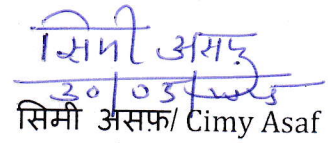 सिमी असफ़
30/05/
सिमी असफ़/ Cimy Asaf